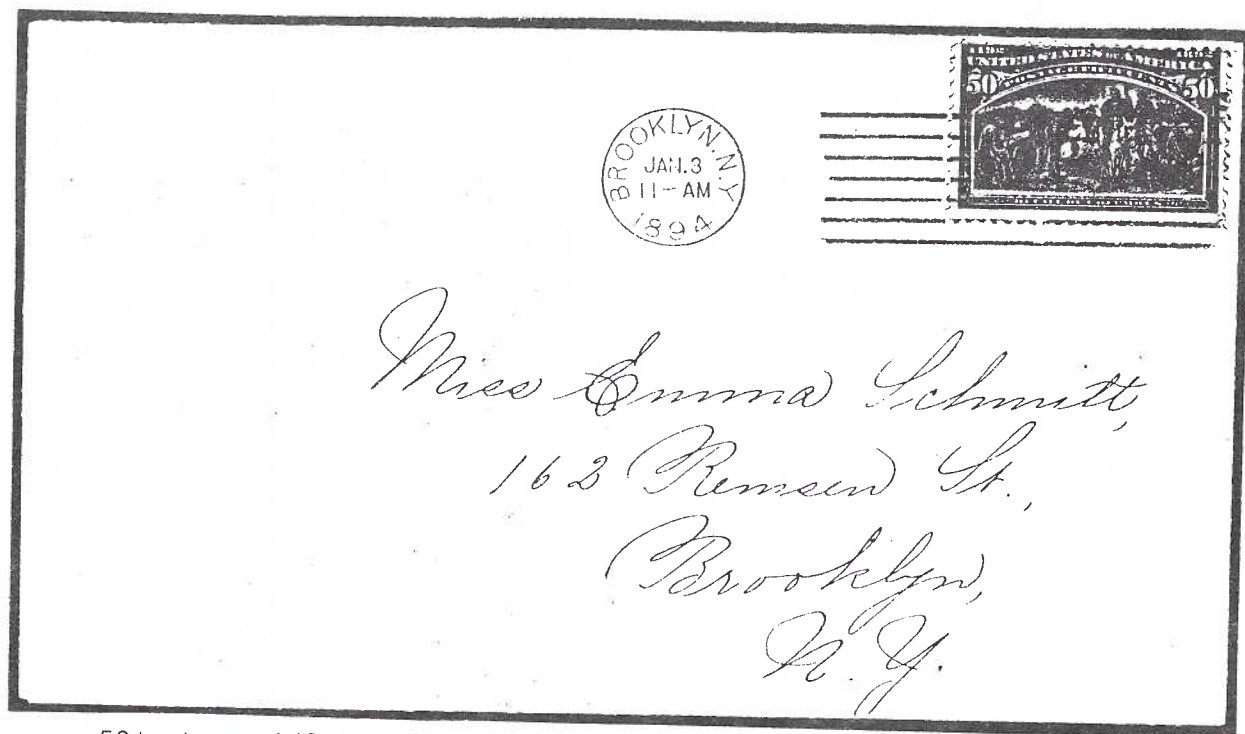 UNITED STATES OF AMERICA
50 POSTAGE FIFTY CENTS 50
BROOKLYN.N.Y
JAN.3
11-AM
1894
Miss Emma Schmitt,
162 Remsen St.,
Brooklyn,
N.Y.